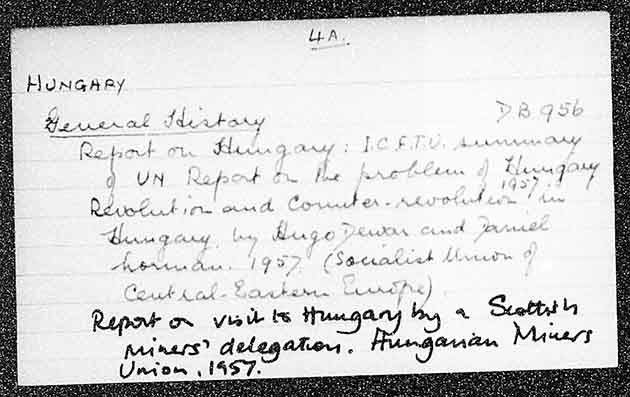 4A.
HUNGARY
General History DB 956
Report on Hungary: I.C.F.T.U. summary
of UN Report on the problem of Hungary
1957.
Revolution and Counter-revolution in
Hungary by Hugo Dewar and Daniel
Norman. 1957. (Socialist Union of
Central-Eastern Europe)
Report on visit to Hungary by a Scottish
Miners' delegation. Hungarian Miners
Union, 1957.